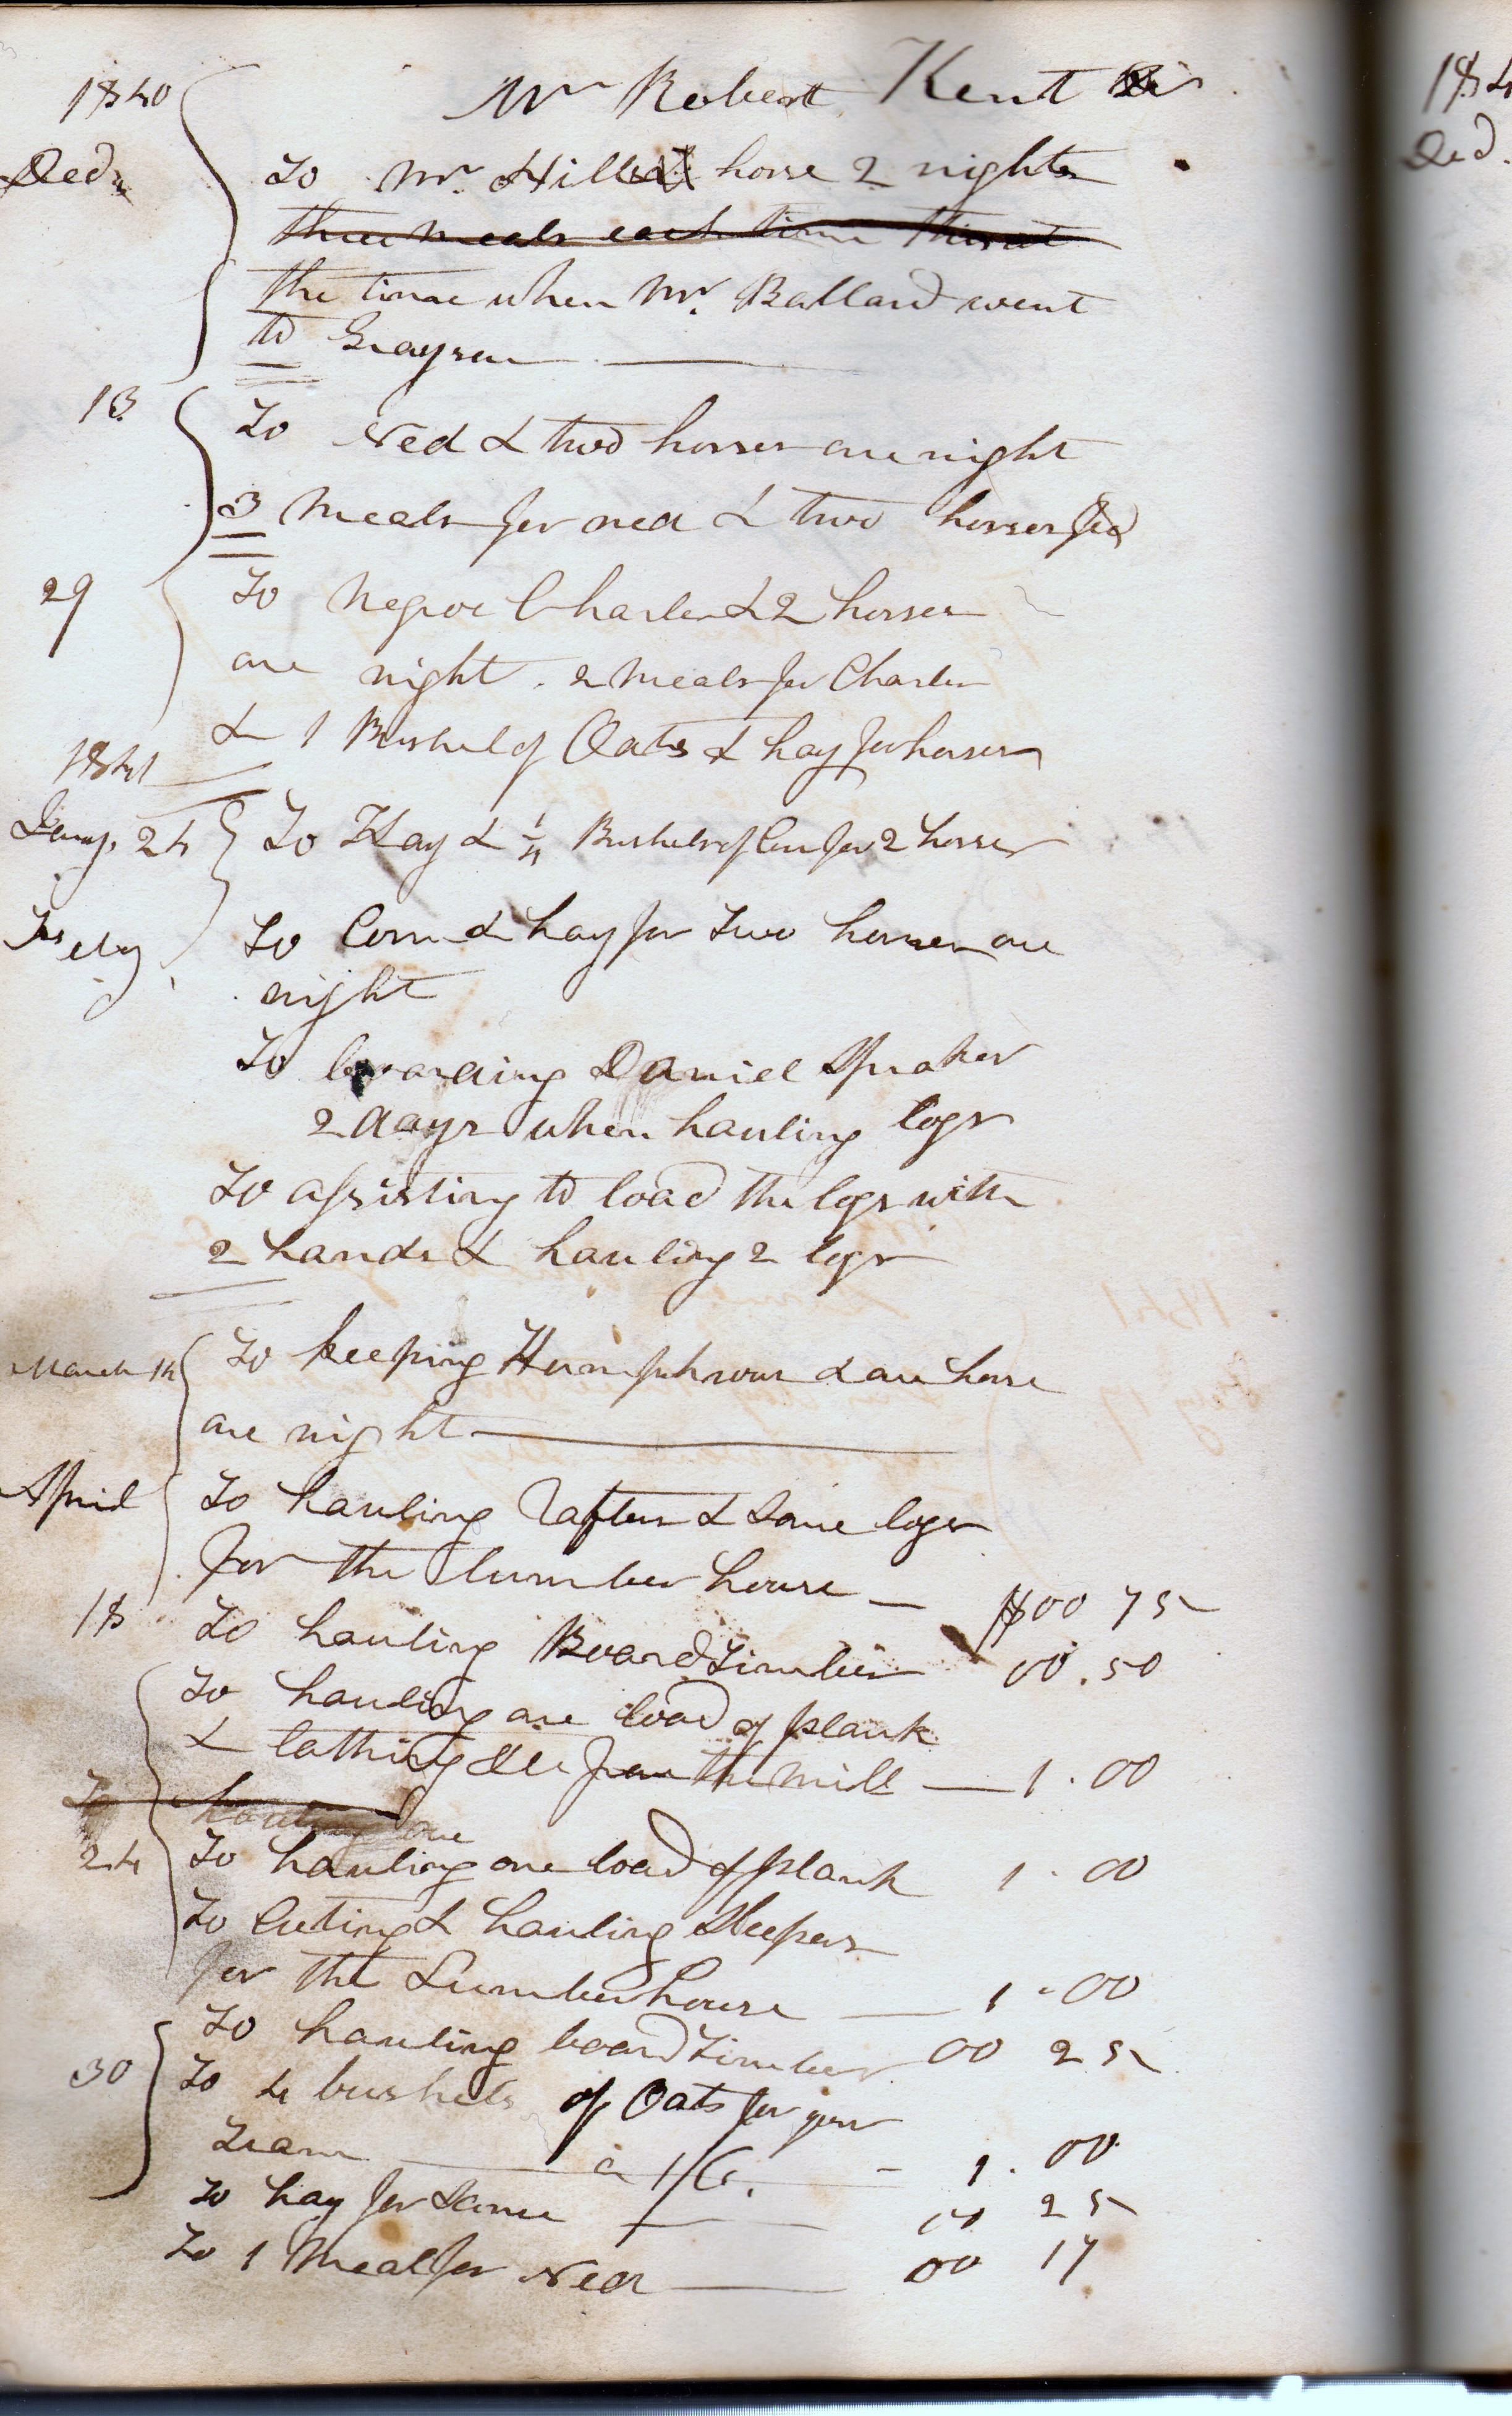 1840 Mr Robert Kent Dr
Decr To Mr. Hill horse 2 nights
three meals each time this at
the time when Mr. Ballard went
to Grayson
13 To Ned & two horses one night
3 meals for ned & two horses fed
29 To Negroe Charles & 2 horses
one night. 2 meals for Charles
& 1 Bushel of Oats & hay for horses
1841
Jany. 24 To Hay & 1/4 Bushels of Corn for 2 horses
To Corn & hay for Two horses one
night
To boarding Daniel Spraker
2 days when hauling logs
To assisting to load the logs with
2 hands & hauling 2 logs
March 14 To keeping Humphrous & one horse
one night
April To hauling Rafters & some logs
for the lumber house — $00 75
18 To hauling Board Timber 00.50
To hauling one load of plank
& lathing &c from the mill — 1.00
To hauling one
24 To hauling one load of plank 1.00
To Cuting & hauling Sleepers
for the Lumber house — 1.00
To hauling board Timber 00 25
30 To 4 bushels of Oats for your
Team — a 1/6. — 1.00
To hay for Same — 00 25
To 1 Meal for Ned — 00 17
184
Decd.